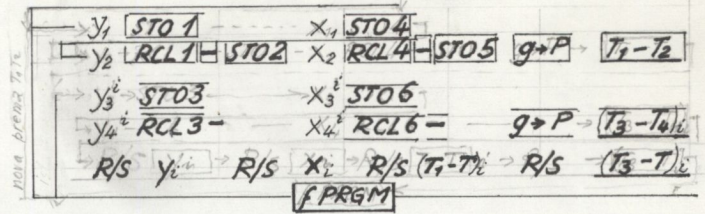 y₁ STO 1 x₁ STO 4
y₂ RCL 1 – STO 2 x₂ RCL 4 – STO 5 g→P T₁–T₂
y₃ⁱ STO 3 x₃ⁱ STO 6
y₄ⁱ RCL 3 – x₄ⁱ RCL 6 – g→P (T₃–T₄)ᵢ
R/S yᵢ R/S xᵢ R/S (T₁–T)ᵢ R/S (T₃–T)ᵢ
f PRGM
nova prema T₁T₂